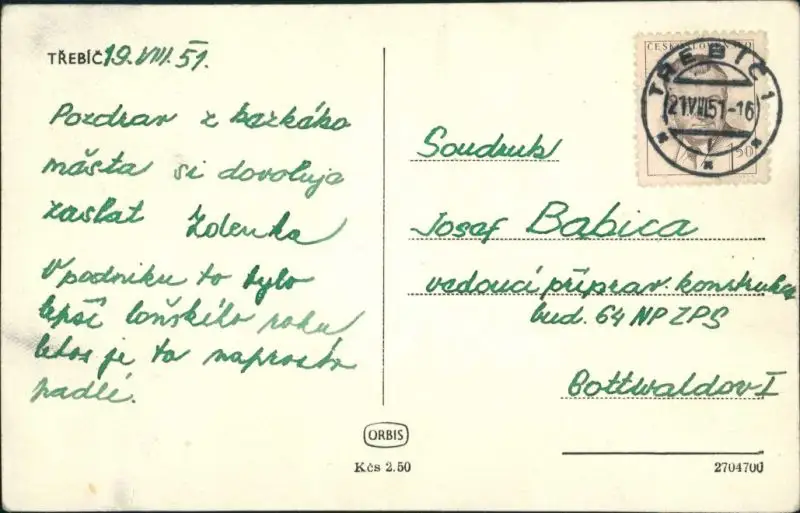 TŘEBÍČ 19.VIII.51.
Pozdrav z hezkého
města si dovoluje
zaslat Zdenka
V podniku to bylo
lepší loňského roku
letos je to naprosto
padlé.
ČESKOSLOVENSKO
1.50
TŘEBÍČ 1
21.VIII.51-16
Soudruh
Josef Babica
vedoucí příprav. konstrukce
bud. 64 NP ZPS
Gottwaldov I
ORBIS
Kčs 2.50
2704700